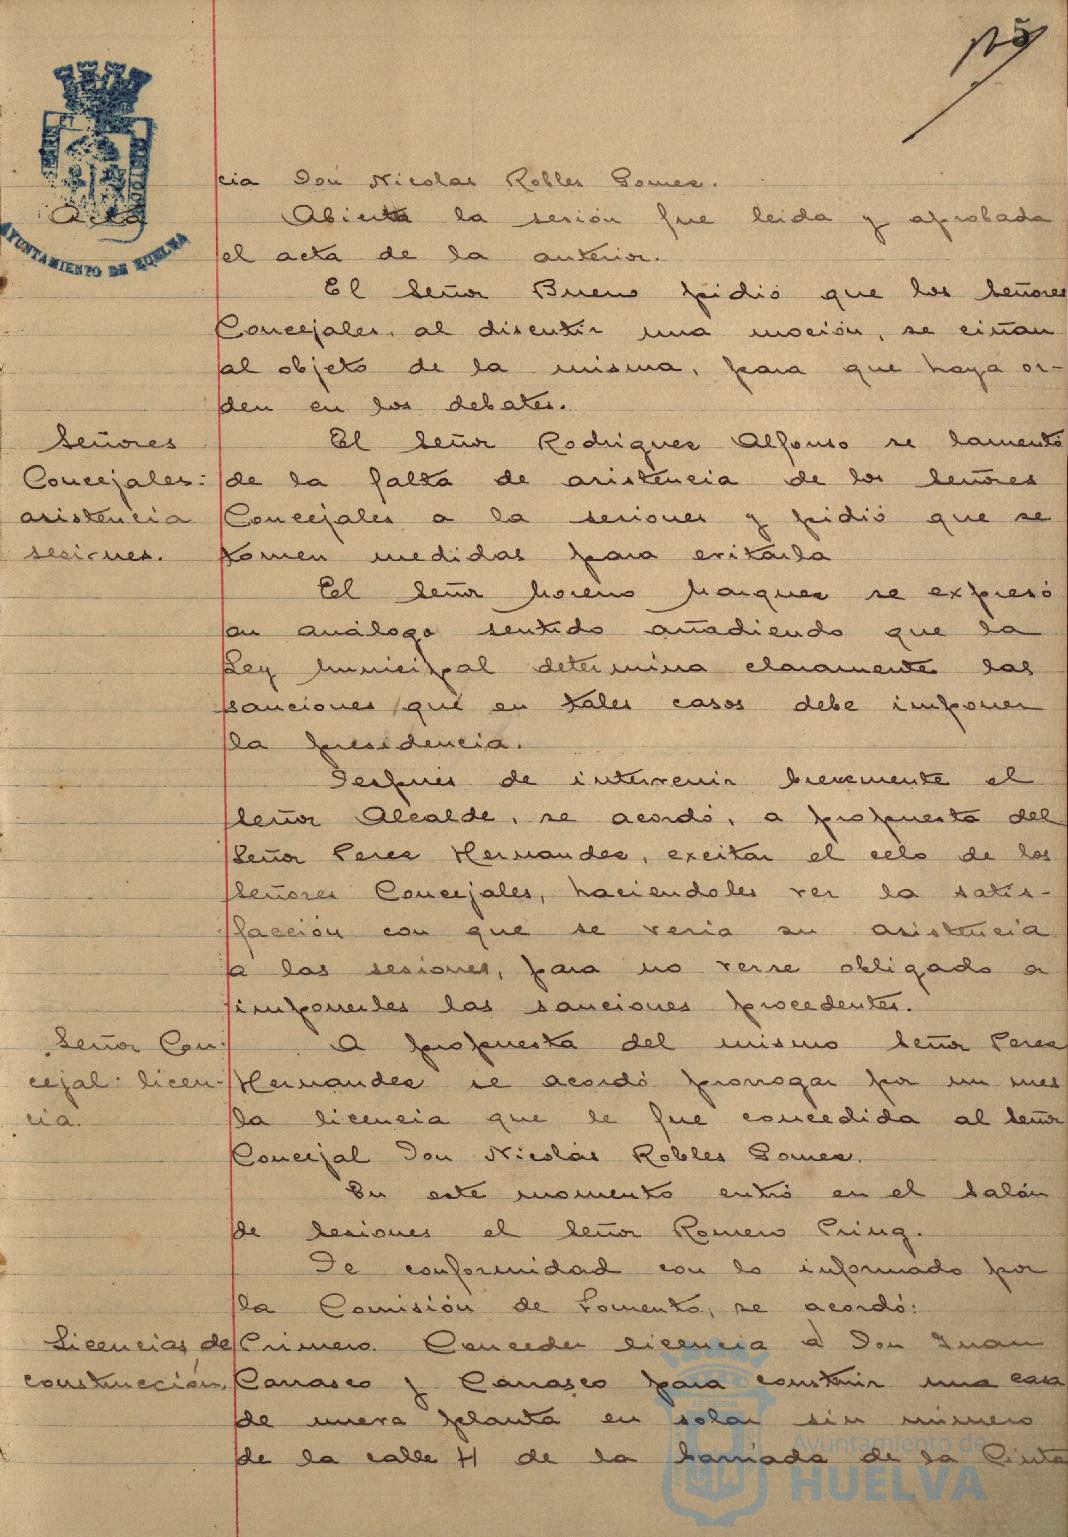 5
cia Don Nicolas Robles Gomez.
Acta
Abierta la sesión fue leida y aprobada
AYUNTAMIENTO DE HUELVA
el acta de la anterior.
El Señor Bueno pidió que los Señores
Concejales, al discutir una moción, se ciñan
al objeto de la misma, para que haya or-
den en los debates.
Señores
Concejales:
asistencia
sesiones.
El Señor Rodriguez Alfonso se lamentó
de la falta de asistencia de los Señores
Concejales a la sesiones y pidió que se
tomen medidas para evitarla
El Señor Moreno Marquez se expresó
en análogo sentido añadiendo que la
Ley Municipal determina claramente las
sanciones que en tales casos debe imponer
la presidencia.
Después de intervenir brevemente el
Señor Alcalde, se acordó, a propuesta del
Señor Perez Hernandez, excitar el celo de los
Señores Concejales, haciendoles ver la satis-
facción con que se veria su asistencia
a las sesiones, para no verse obligado a
imponerles las sanciones procedentes.
Señor Con-
cejal: licen-
cia.
A propuesta del mismo Señor Perez
Hernandez se acordó prorrogar por un mes
la licencia que le fue concedida al Señor
Concejal Don Nicolás Robles Gomez.
En este momento entró en el Salón
de Sesiones el Señor Romero Pring.
De conformidad con lo informado por
la Comisión de Fomento, se acordó:
Licencias de
construcción.
Primero. Conceder licencia a Don Juan
Carrasco y Carrasco para construir una casa
de nueva planta en solar sin número
de la calle H de la barriada de la Pinta
Ayuntamiento de
HUELVA